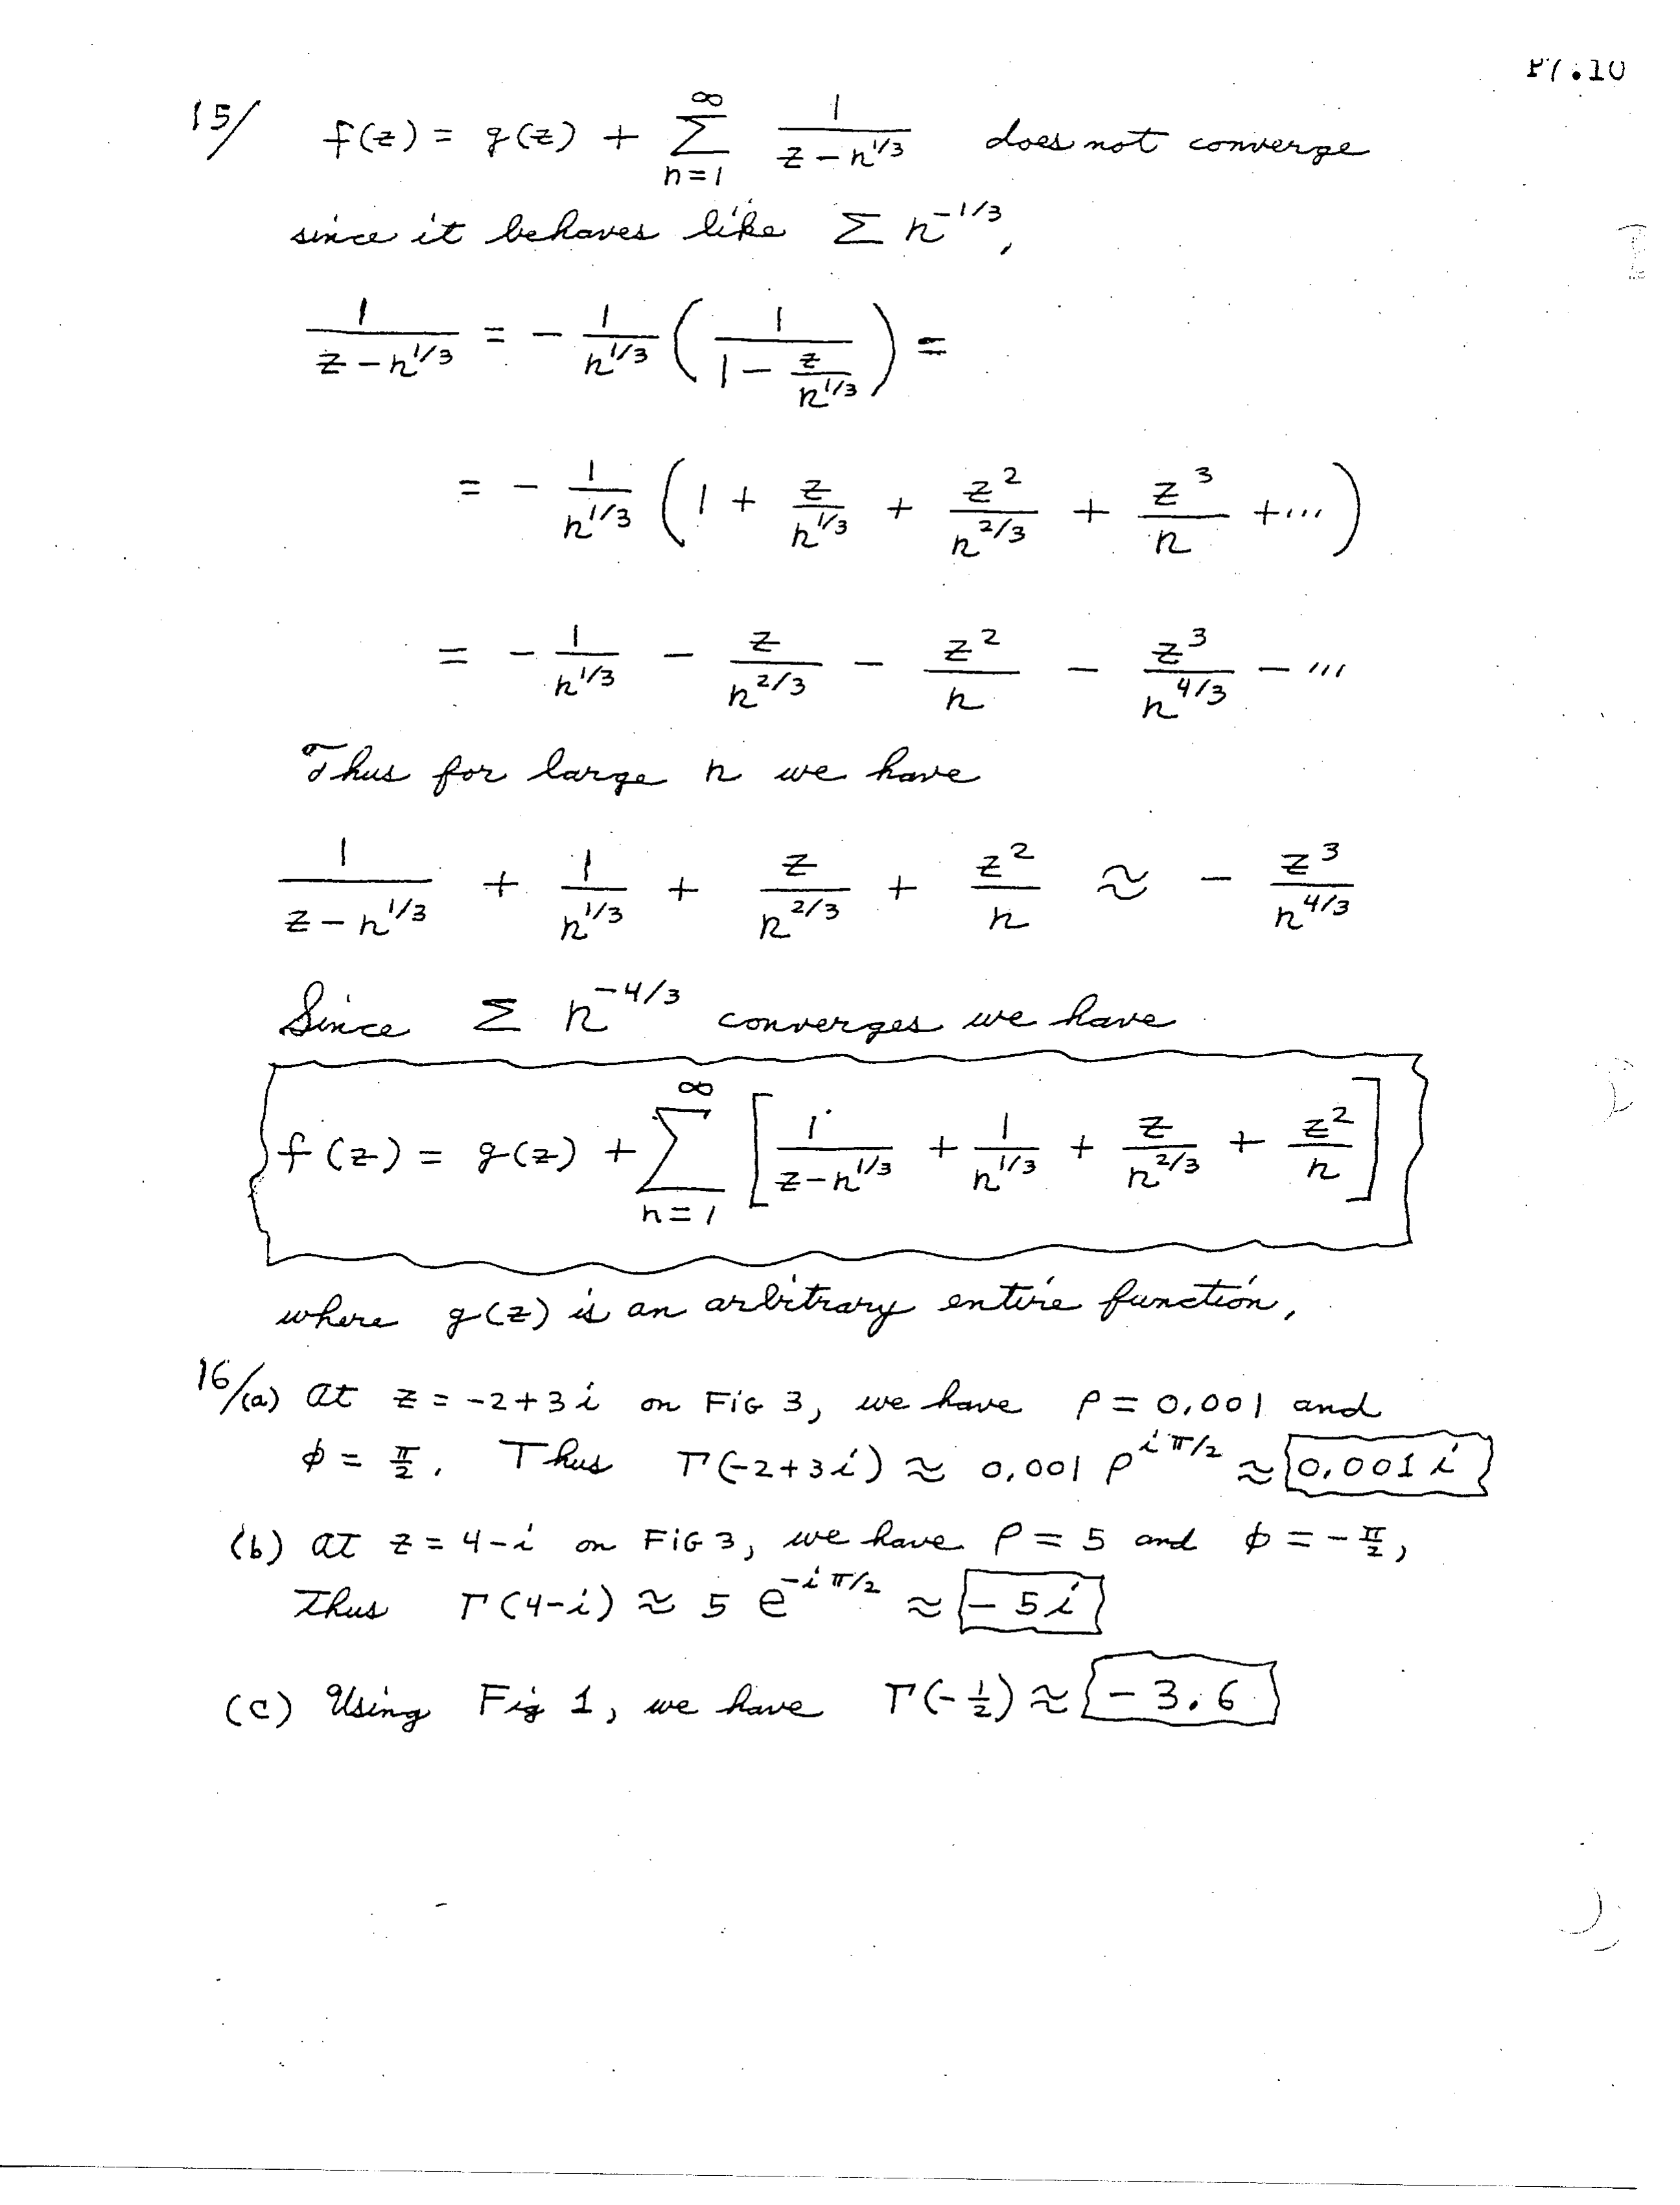 P7.10
15/ f(z) = g(z) + ∑_{n=1}^{∞} 1/(z - n^{1/3}) does not converge
since it behaves like Σ n^{-1/3},
1/(z - n^{1/3}) = - 1/n^{1/3} ( 1/(1 - z/n^{1/3}) ) =
= - 1/n^{1/3} ( 1 + z/n^{1/3} + z^2/n^{2/3} + z^3/n + ... )
= - 1/n^{1/3} - z/n^{2/3} - z^2/n - z^3/n^{4/3} - ...
Thus for large n we have
1/(z - n^{1/3}) + 1/n^{1/3} + z/n^{2/3} + z^2/n ≈ - z^3/n^{4/3}
Since Σ n^{-4/3} converges we have
f(z) = g(z) + ∑_{n=1}^{∞} [ 1/(z - n^{1/3}) + 1/n^{1/3} + z/n^{2/3} + z^2/n ]
where g(z) is an arbitrary entire function,
16/(a) At z = -2+3i on FiG 3, we have ρ = 0.001 and
φ = π/2. Thus Γ(-2+3i) ≈ 0.001 ρ^{iπ/2} ≈ 0.001 i
(b) At z = 4-i on FiG 3, we have ρ = 5 and φ = -π/2,
Thus Γ(4-i) ≈ 5 e^{-iπ/2} ≈ -5i
(c) Using Fig 1, we have Γ(-1/2) ≈ -3.6